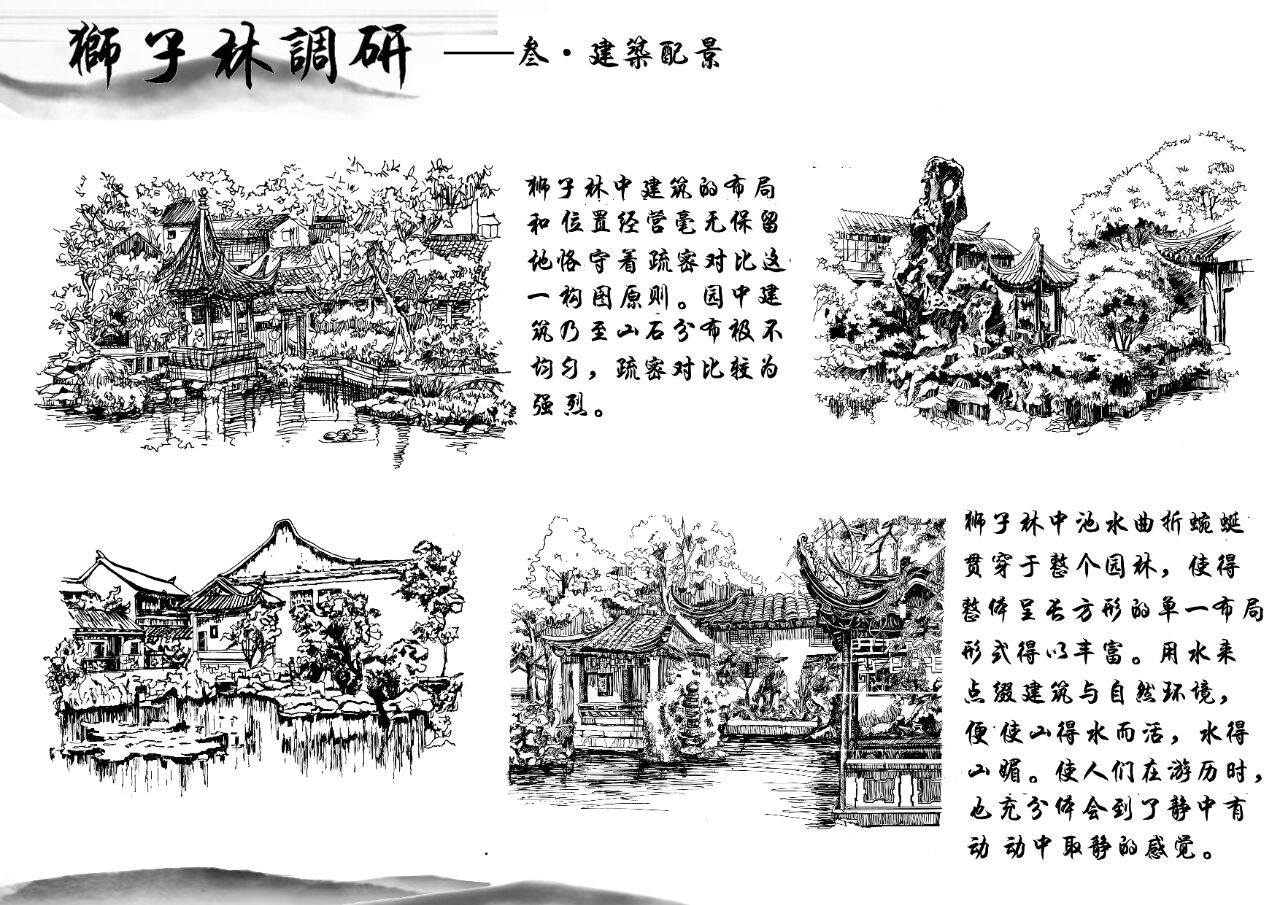 獅子林調研——叁·建築配景
狮子林中建筑的布局
和位置经营毫无保留
地恪守着疏密对比这
一构图原则。园中建
筑乃至山石分布极不
均匀，疏密对比较为
强烈。
狮子林中池水曲折蜿蜒
贯穿于整个园林，使得
整体呈长方形的单一布局
形式得以丰富。用水来
点缀建筑与自然环境，
便使山得水而活，水得
山媚。使人们在游历时，
也充分体会到了静中有
动 动中取静的感觉。